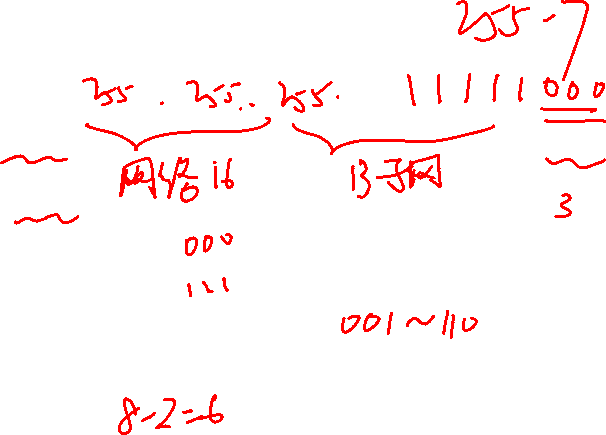 255-7
255.255.255.11111000
网络16 13子网 3
000
111
001~110
8-2=6